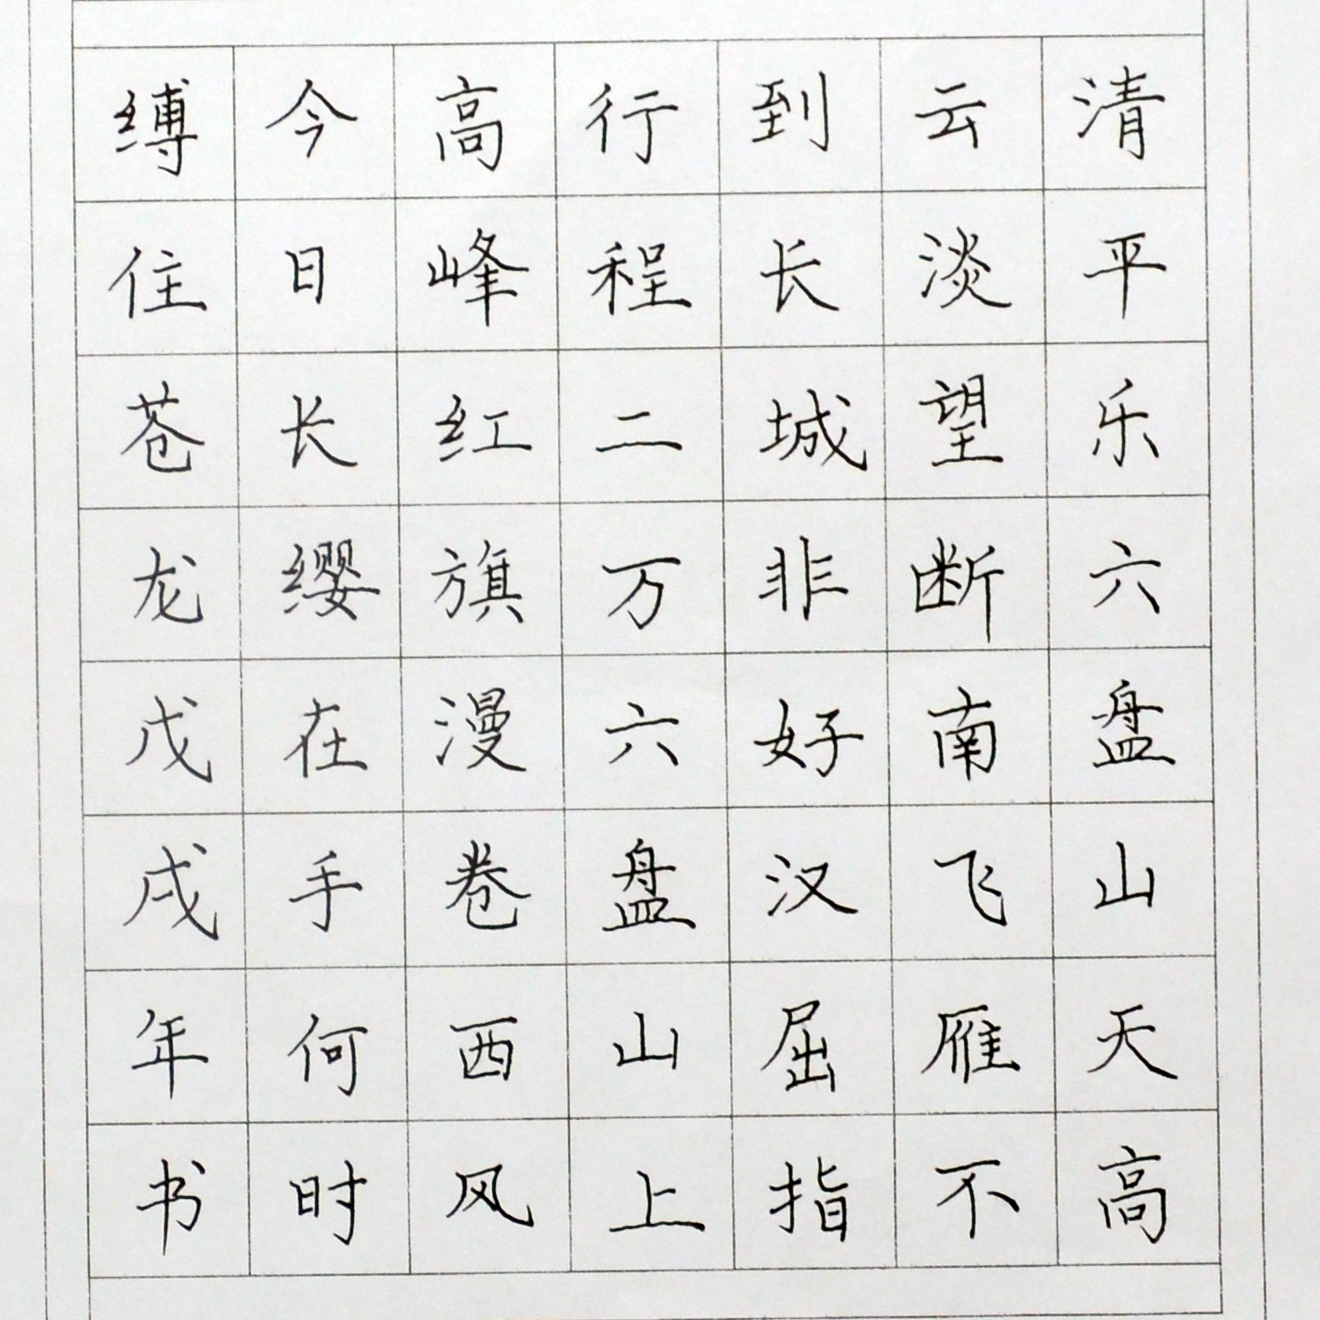 清平乐六盘山天高
云淡望断南飞雁不
到长城非好汉屈指
行程二万六盘山上
高峰红旗漫卷西风
今日长缨在手何时
缚住苍龙戊戌年书